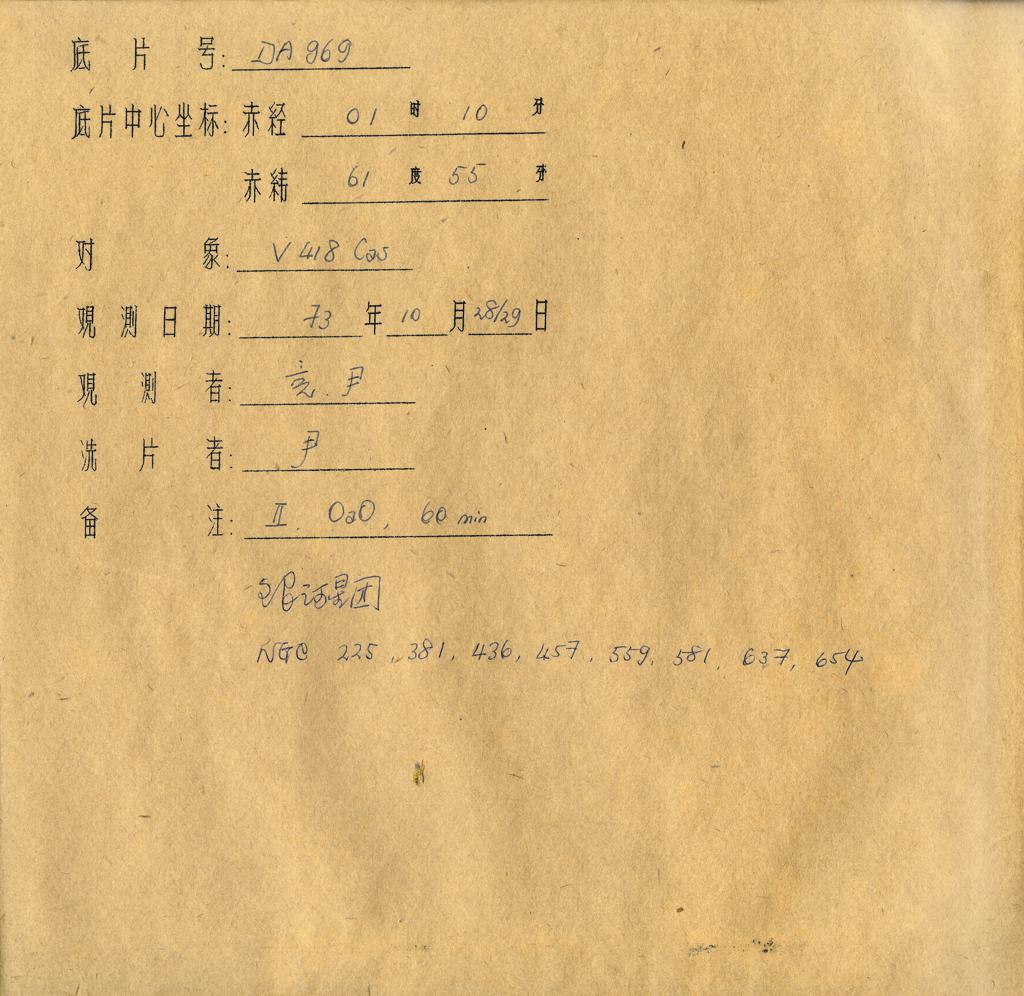 底片号: DA 969
底片中心坐标: 赤经 01 时 10 分
赤纬 61 度 55 分
对象: V 418 Cas
观测日期: 73 年 10 月 28/29 日
观测者: 竞. 尹
洗片者: 尹
备注: II. OaO, 60 min
银河星团
NGC 225, 381, 436, 457, 559, 581, 637, 654